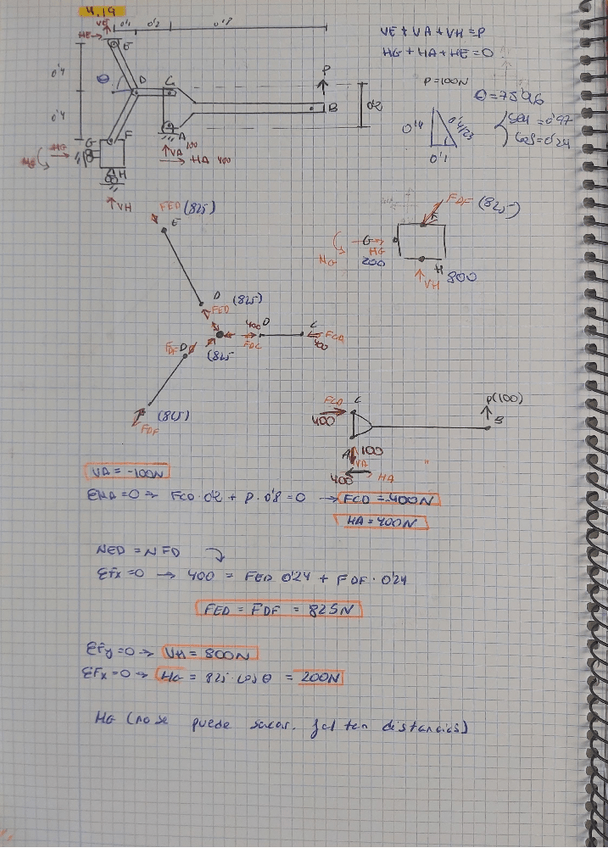 4.19
VE
0'1 0'2 0'8
VE + VA + VH = P
HE E
HG + HA + HE = 0
0'4
P
P=100N
θ = 75'96
θ D C
B 0'2
0'4
0'4 0'1
cos = 0'24
G F A
VA 100
HA 400
H
VH
FED (825)
E
FDF (825)
G
HG
200
H
VH 800
D (825)
FED
400 D C
FDF D
FDC 400 FCD
(825
(825)
FDF
FCD C
400
P(100)
B
A 100
VA
400 HA
VA = -100N
ΣMA=0 → FCD · 0'2 + P · 0'8 = 0 → FCD = -400N
HA = 400N
NED = NFD
ΣFx=0 → 400 = FED 0'24 + FDF · 0'24
FED = FDF = 825N
ΣFy=0 → VH = 800N
ΣFx=0 → HG = 825 cos θ = 200N
MG (no se puede sacar. faltan distancias)